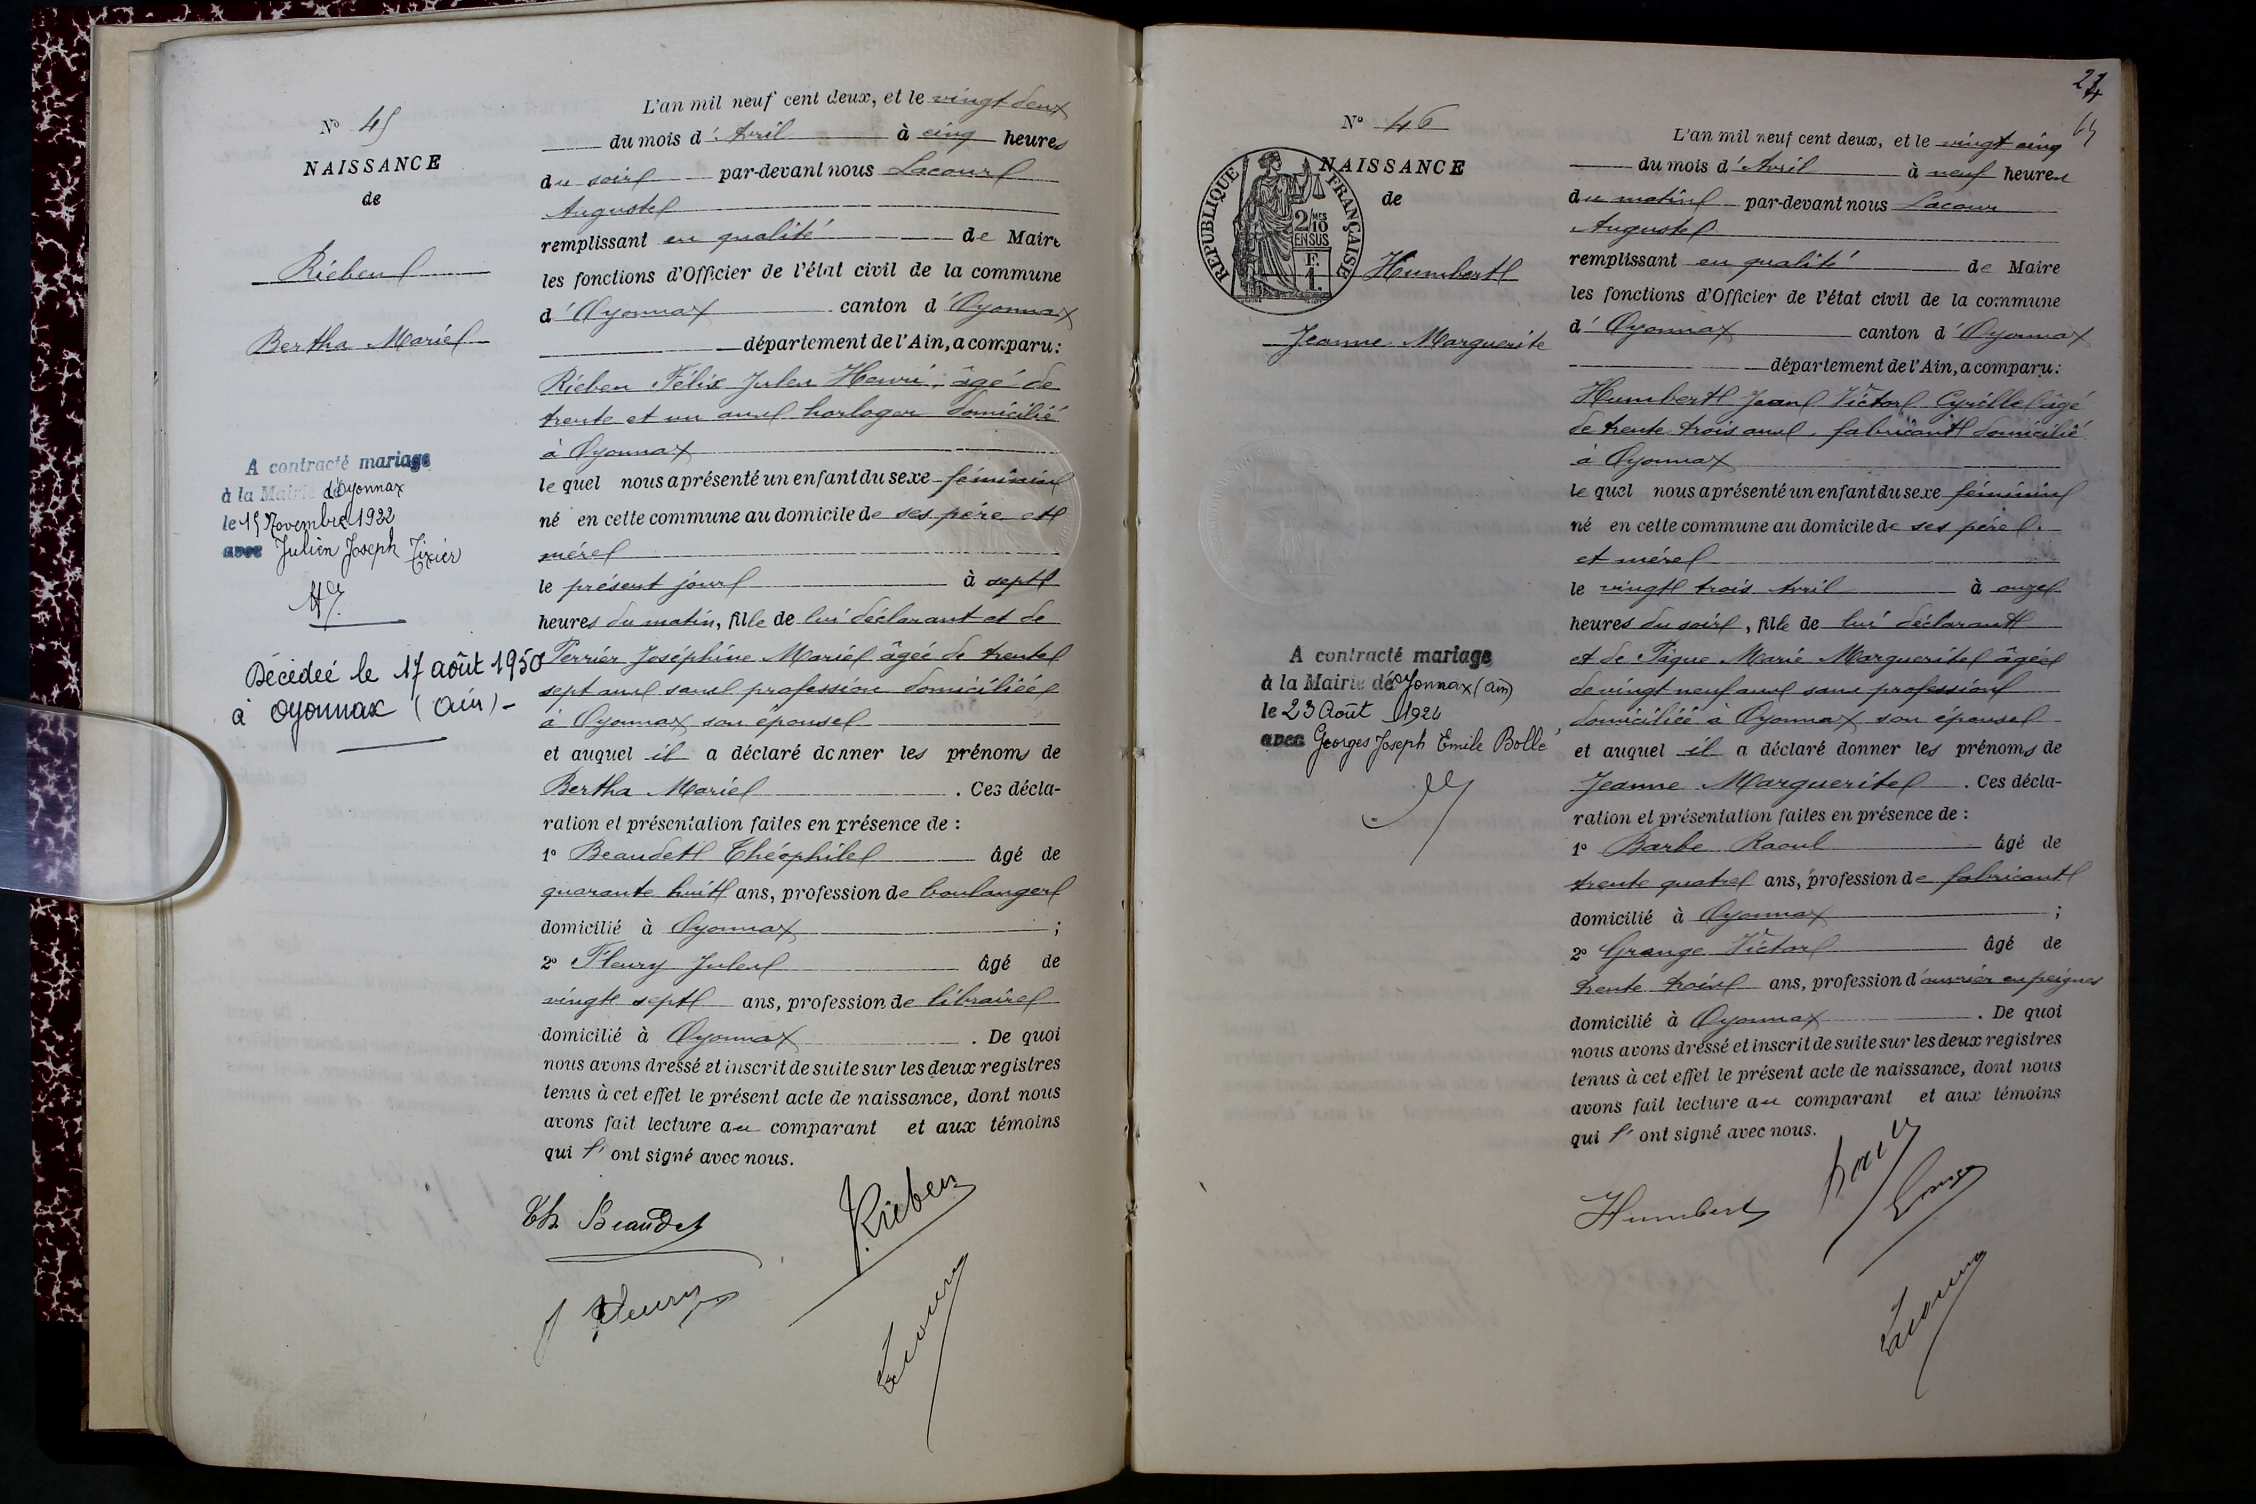 Nº 45
NAISSANCE
de
Rieben
Bertha Marie
A contracté mariage
à la Mairie d'Oyonnax
le 15 Novembre 1922
avec Julien Joseph Tixier
Décédée le 17 août 1950
à Oyonnax (Ain)-
L'an mil neuf cent deux, et le vingt deux
du mois d'Avril à cinq heures
du soir par-devant nous Lacour
Auguste
remplissant en qualité de Maire
les fonctions d'Officier de l'état civil de la commune
d'Oyonnax canton d'Oyonnax
département de l'Ain, a comparu :
Rieben Félix Jules Henri, âgé de
trente et un ans horloger domicilié
à Oyonnax
le quel nous a présenté un enfant du sexe féminin
né en cette commune au domicile de ses père et
mère
le présent jour à sept
heures du matin, fille de lui déclarant et de
Perrier Joséphine Marie âgée de trente
sept ans sans profession domiciliée
à Oyonnax son épouse
et auquel il a déclaré donner les prénoms de
Bertha Marie . Ces décla-
ration et présentation faites en présence de :
1º Beaudet Théophile âgé de
quarante huit ans, profession de boulanger
domicilié à Oyonnax ;
2º Fleury Jules âgé de
vingt sept ans, profession de libraire
domicilié à Oyonnax . De quoi
nous avons dressé et inscrit de suite sur les deux registres
tenus à cet effet le présent acte de naissance, dont nous
avons fait lecture au comparant et aux témoins
qui l'ont signé avec nous.
Th Beaudet
Rieben
J Fleury
Lacour
24
Nº 46
NAISSANCE
de
RÉPUBLIQUE FRANÇAISE
2/10 MES
EN SUS
F.
1.
Humbert
Jeanne Marguerite
A contracté mariage
à la Mairie d'Oyonnax (Ain)
le 23 Août 1924
avec Georges Joseph Emile Bollé
L'an mil neuf cent deux, et le vingt cinq
du mois d'Avril à neuf heures
du matin par-devant nous Lacour
Auguste
remplissant en qualité de Maire
les fonctions d'Officier de l'état civil de la commune
d'Oyonnax canton d'Oyonnax
département de l'Ain, a comparu :
Humbert Jean Victor Cyrille âgé
de trente trois ans, fabricant domicilié
à Oyonnax
le quel nous a présenté un enfant du sexe féminin
né en cette commune au domicile de ses père
et mère
le vingt trois Avril à onze
heures du soir, fille de lui déclarant
et de Pâque Marie Marguerite âgée
de vingt neuf ans sans profession
domiciliée à Oyonnax son épouse
et auquel il a déclaré donner les prénoms de
Jeanne Marguerite . Ces décla-
ration et présentation faites en présence de :
1º Barbe Raoul âgé de
trente quatre ans, profession de fabricant
domicilié à Oyonnax ;
2º Grange Victor âgé de
trente trois ans, profession d'ouvrier en peignes
domicilié à Oyonnax . De quoi
nous avons dressé et inscrit de suite sur les deux registres
tenus à cet effet le présent acte de naissance, dont nous
avons fait lecture au comparant et aux témoins
qui l'ont signé avec nous.
Humbert
Lacour